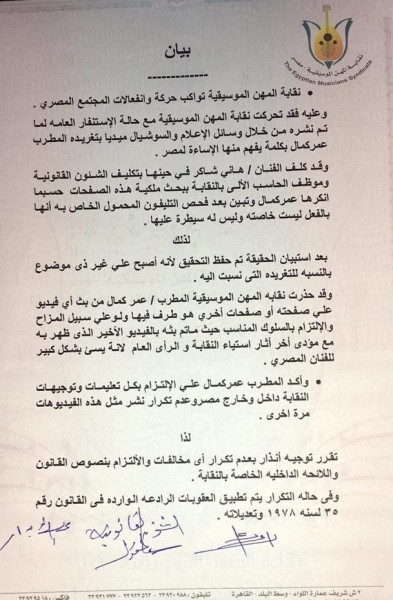 نقابة المهن الموسيقية - مصر
The Egyptian Musicians Syndicate
بيان
-------------
• نقابة المهن الموسيقية تواكب حركة وانفعالات المجتمع المصري .
وعليه فقد تحركت نقابة المهن الموسيقية مع حالة الإستنفار العامه لما
تم نشره من خلال وسائل الإعلام والسوشيال ميديا بتغريده المطرب
عمركمال بكلمة يفهم منها الإساءة لمصر .
وقد كلف الفنان / هاني شاكر في حينها بتكليف الشئون القانونية
وموظف الحاسب الألى بالنقابة ببحث ملكية هذه الصفحات حسبما
انكرها عمركمال وتبين بعد فحص التليفون المحمول الخاص به أنها
بالفعل ليست خاصته وليس له سيطرة عليها .
لذلك
بعد استبيان الحقيقة تم حفظ التحقيق لأنه أصبح علي غير ذى موضوع
بالنسبه للتغريده التى نسبت اليه .
وقد حذرت نقابه المهن الموسيقية المطرب / عمر كمال من بث أي فيديو
علي صفحته أو صفحات أخري هو طرف فيها ولوعلي سبيل المزاح
والإلتزام بالسلوك المناسب حيث ماتم بثه بالفيديو الأخير الذى ظهر به
مع مؤدى أخر أثار استياء النقابة و الرأى العام لانة يسئ بشكل كبير
للفنان المصري .
• وأكد المطرب عمركمال علي الإلتزام بكل تعليمات وتوجيهات
النقابة داخل وخارج مصروعدم تكرار نشر مثل هذه الفيديوهات
مرة اخرى .
لذا
تقرر توجيه أنذار بعدم تكرار أى مخالفات والألتزام بنصوص القانون
واللائحه الداخليه الخاصة بالنقابة .
وفى حاله التكرار يتم تطبيق العقوبات الرادعه الوارده فى القانون رقم
٣٥ لسنه ١٩٧٨ وتعديلاته .
الشئون القانونية
٢ ش شريف عمارة اللواء - وسط البلد - القاهرة